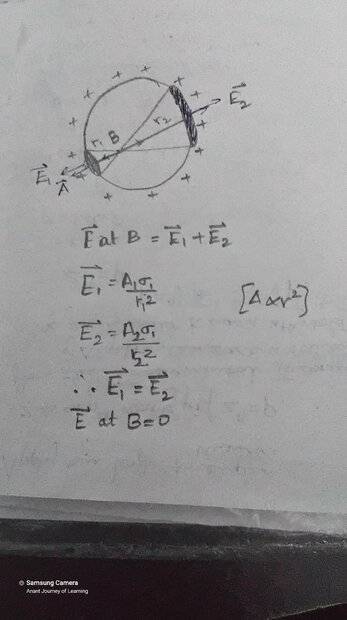 + + + + + + + + + + + + +
r₁ B r₂
E⃗₂
E⃗₁
A⃗
E⃗ at B = E⃗₁ + E⃗₂
E⃗₁ = A₁σ₁/r₁² [A ∝ r²]
E⃗₂ = A₂σ₁/r₂²
∴ E⃗₁ = E⃗₂
E⃗ at B = 0
Samsung Camera
Anant Journey of Learning